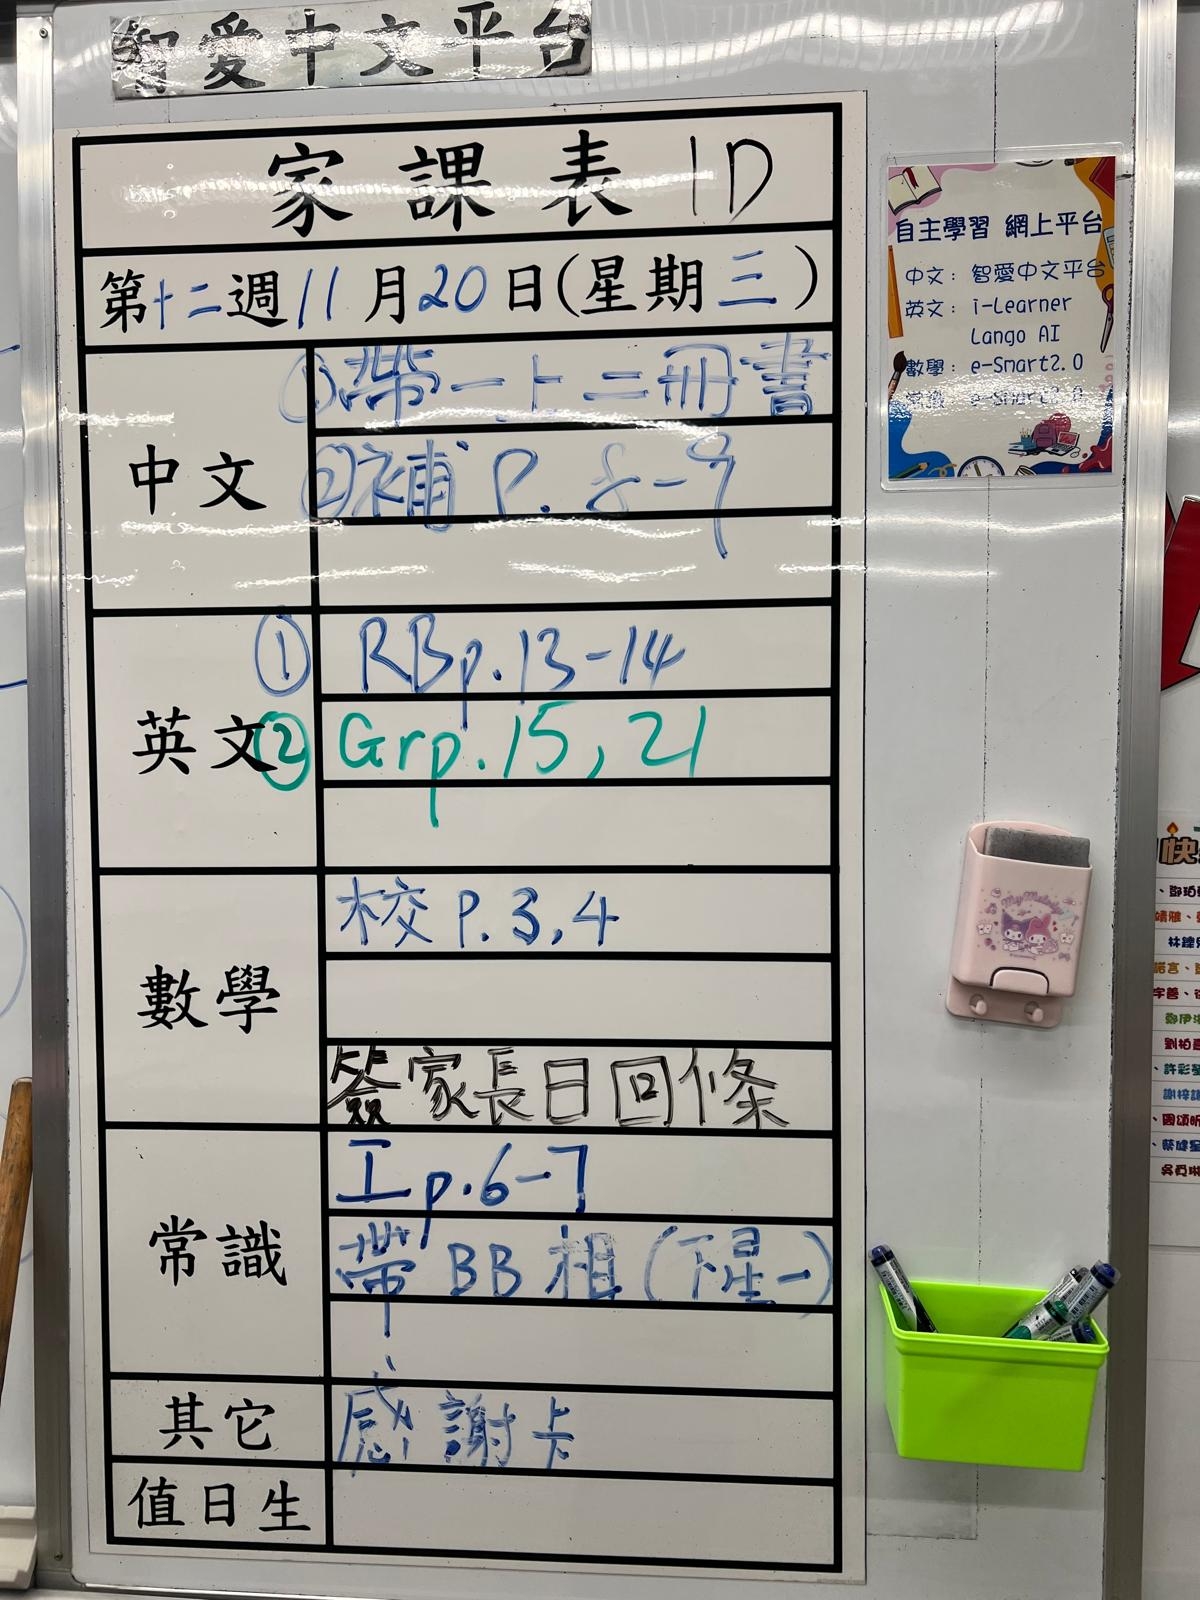 智愛中文平台
家課表 1D
第十二週11月20日(星期三)
中文
①帶一上二冊書
②補 P. 8-9
英文
① RB p.13-14
② Gr p.15, 21
數學
校 P. 3, 4
簽家長日回條
常識
工 p.6-7
帶 BB 相 (下星一)
其它
感謝卡
值日生
自主學習 網上平台
中文: 智愛中文平台
英文: i-Learner
Lango AI
數學: e-Smart2.0
常識: e-Smart2.0
My Melody
快
、鄭珀
靖雅、
林鍏
諾言、
宇善、
鄭伊
劉柏
、許彩
謝梓
、國頌昕
、蔡健
吳貝